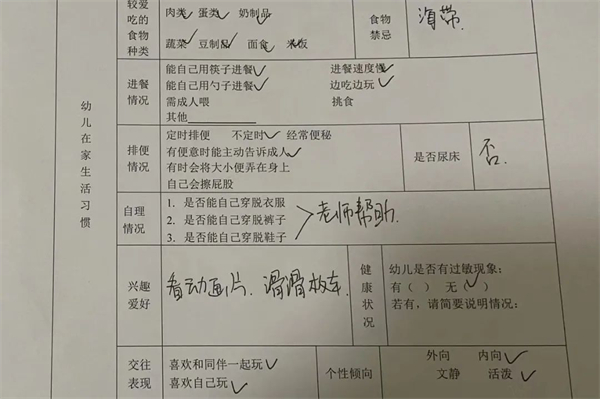 较爱
吃的
食物
种类
肉类✓ 蛋类✓ 奶制品✓
蔬菜✓ 豆制品✓ 面食✓ 米饭✓
食物
禁忌
海带
幼儿在家生活习惯
进餐
情况
能自己用筷子进餐✓ 进餐速度慢✓
能自己用勺子进餐✓ 边吃边玩✓
需成人喂 挑食
其他
排便
情况
定时排便 不定时✓ 经常便秘
有便意时能主动告诉成人✓
有时会将大小便弄在身上
自己会擦屁股
是否尿床
否.
自理
情况
1. 是否能自己穿脱衣服
2. 是否能自己穿脱裤子
3. 是否能自己穿脱鞋子
老师帮助.
兴趣
爱好
看动画片. 滑滑板车.
健康状况
幼儿是否有过敏现象:
有（ ） 无（✓）
若有，请简要说明情况:
交往
表现
喜欢和同伴一起玩✓
喜欢自己玩✓
个性倾向
外向 内向✓
文静 活泼✓